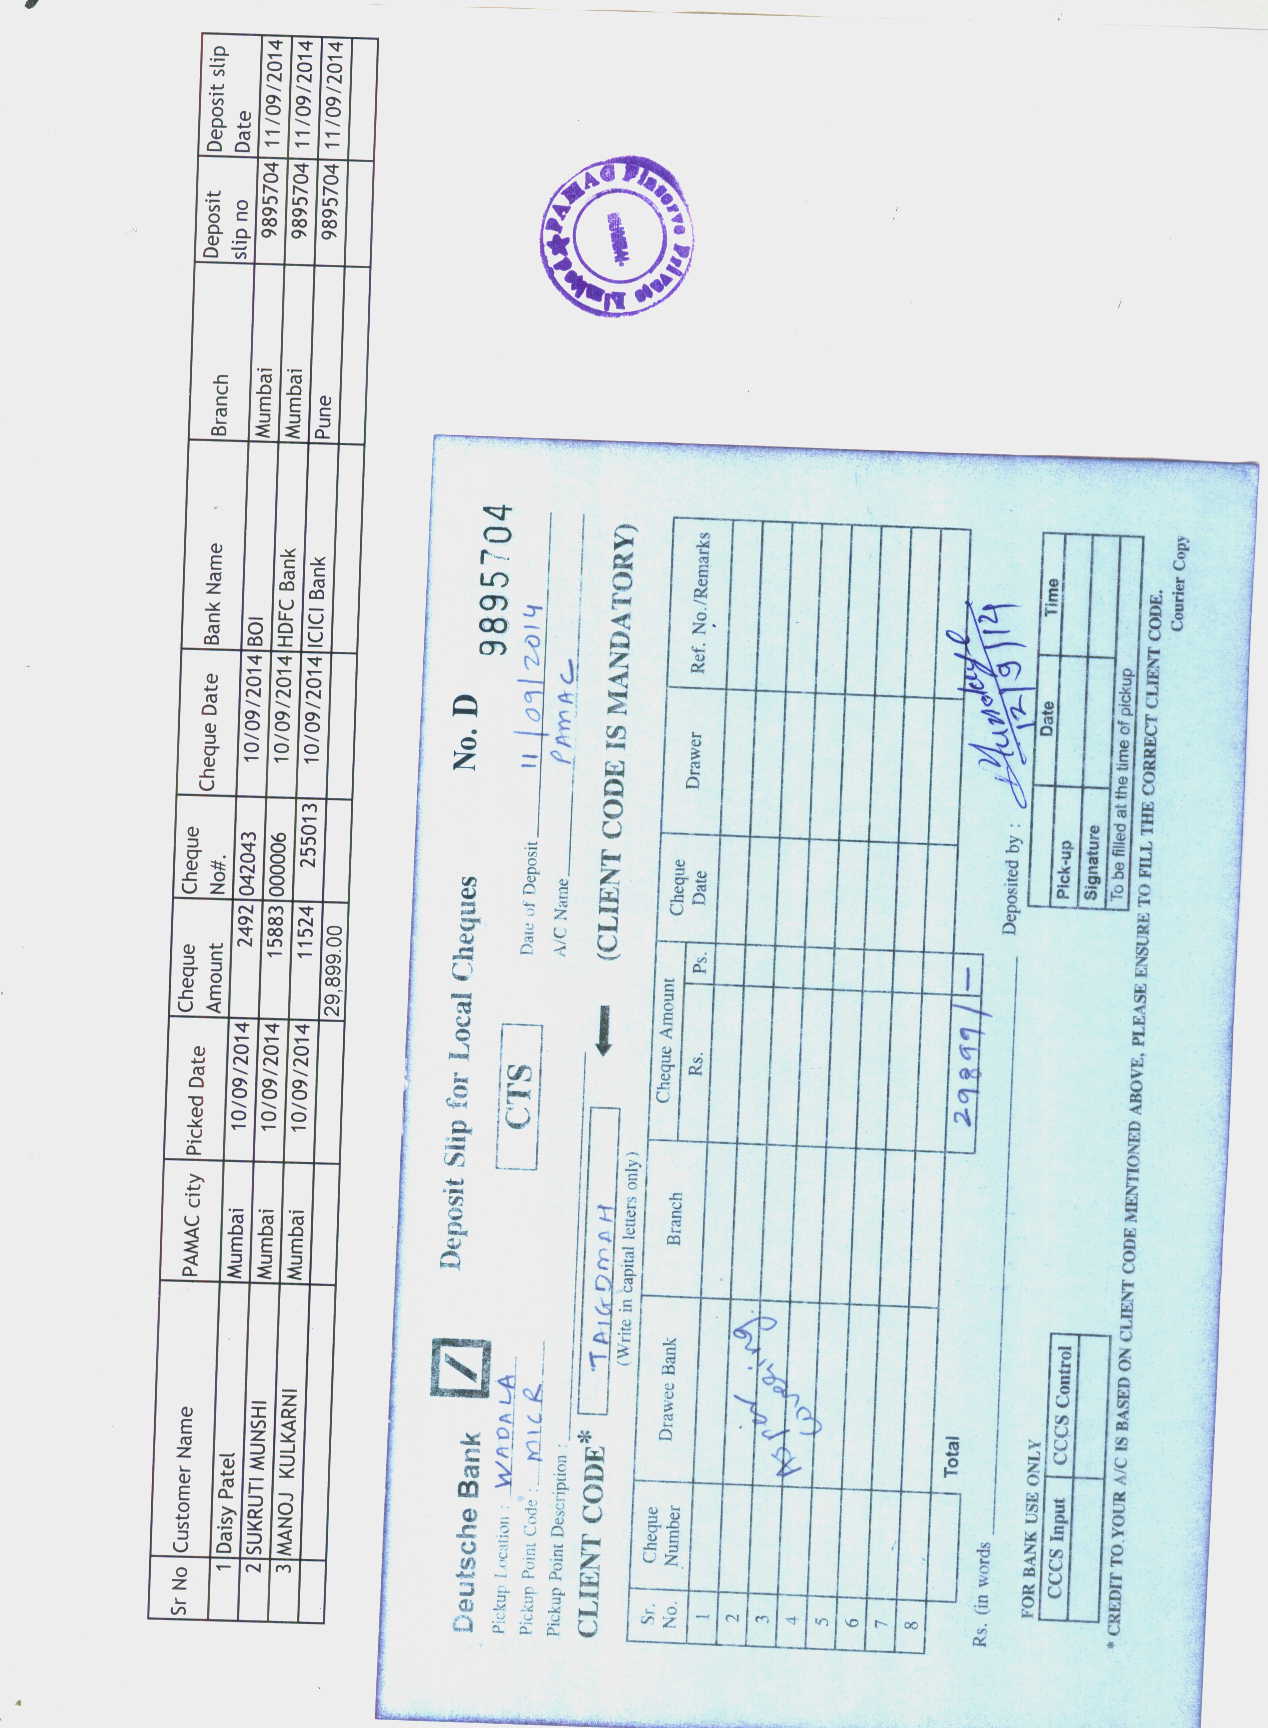 Sr No Customer Name PAMAC city Picked Date Cheque Amount Cheque No#. Cheque Date Bank Name Branch Deposit slip no Deposit slip Date
1 Daisy Patel Mumbai 10/09/2014 2492 042043 10/09/2014 BOI Mumbai 9895704 11/09/2014
2 SUKRUTI MUNSHI Mumbai 10/09/2014 15883 000006 10/09/2014 HDFC Bank Mumbai 9895704 11/09/2014
3 MANOJ KULKARNI Mumbai 10/09/2014 11524 255013 10/09/2014 ICICI Bank Pune 9895704 11/09/2014
29,899.00
PAMAC Finserve Private Limited
Deutsche Bank Deposit Slip for Local Cheques No. D 9895704
Pickup Location : WADALA CTS Date of Deposit 11/09/2014
Pickup Point Code : MICR A/C Name PAMAC
Pickup Point Description :
CLIENT CODE* TAIGDMAH (CLIENT CODE IS MANDATORY)
(Write in capital letters only)
Sr. No. Cheque Number Drawee Bank Branch Cheque Amount Rs. Ps. Cheque Date Drawer Ref. No./Remarks
1
2
3
4
5
6
7
8
Total 29899/-
Rs. (in words Deposited by :
12/9/14
FOR BANK USE ONLY
CCCS Input CCCS Control
Date Time
Pick-up
Signature
To be filled at the time of pickup
* CREDIT TO YOUR A/C IS BASED ON CLIENT CODE MENTIONED ABOVE, PLEASE ENSURE TO FILL THE CORRECT CLIENT CODE.
Courier Copy